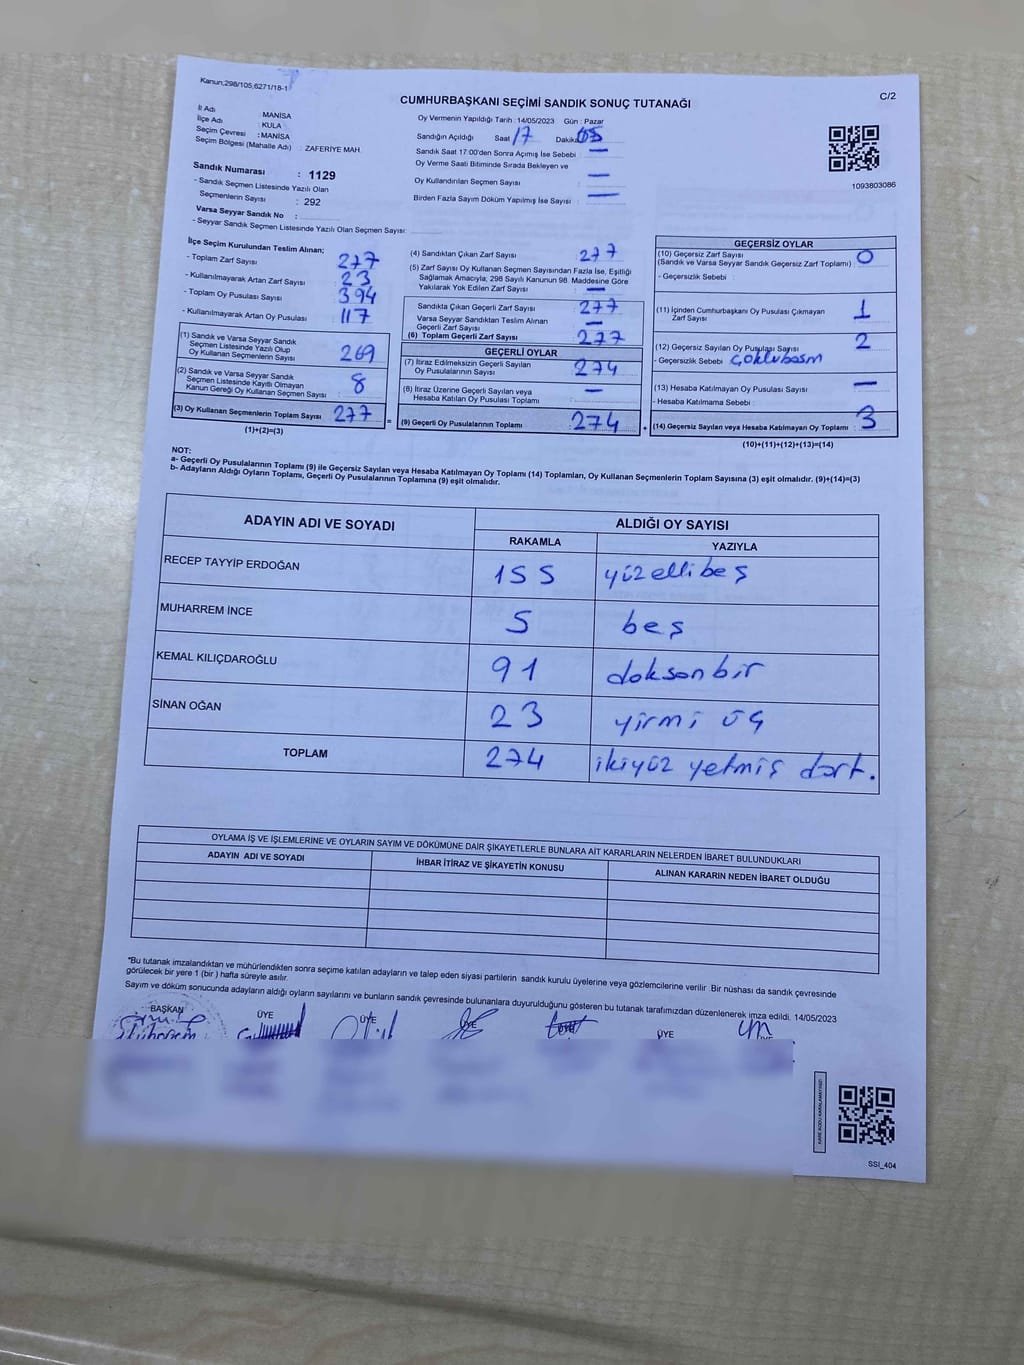 Kanun;298/105,6271/18-1
C/2
CUMHURBAŞKANI SEÇİMİ SANDIK SONUÇ TUTANAĞI
İl Adı : MANİSA
İlçe Adı : KULA
Seçim Çevresi : MANİSA
Seçim Bölgesi (Mahalle Adı) : ZAFERİYE MAH.
Oy Vermenin Yapıldığı Tarih : 14/05/2023 Gün : Pazar
Sandığın Açıldığı Saat 17 Dakika 05
Sandık Saat 17:00'den Sonra Açımış İse Sebebi : —
Oy Verme Saati Bitiminde Sırada Bekleyen ve
Oy Kullandırılan Seçmen Sayısı : —
Birden Fazla Sayım Döküm Yapılmış İse Sayısı : —
1093803086
Sandık Numarası : 1129
- Sandık Seçmen Listesinde Yazılı Olan
Seçmenlerin Sayısı : 292
Varsa Seyyar Sandık No :
- Seyyar Sandık Seçmen Listesinde Yazılı Olan Seçmen Sayısı:
İlçe Seçim Kurulundan Teslim Alınan;
- Toplam Zarf Sayısı : 277
- Kullanılmayarak Artan Zarf Sayısı : 23
- Toplam Oy Pusulası Sayısı : 394
- Kullanılmayarak Artan Oy Pusulası : 117
(1) Sandık ve Varsa Seyyar Sandık
Seçmen Listesinde Yazılı Olup
Oy Kullanan Seçmenlerin Sayısı : 269
(2) Sandık ve Varsa Seyyar Sandık
Seçmen Listesinde Kayıtlı Olmayan
Kanun Gereği Oy Kullanan Seçmen Sayısı : 8
(3) Oy Kullanan Seçmenlerin Toplam Sayısı : 277
(1)+(2)=(3)
(4) Sandıktan Çıkan Zarf Sayısı : 277
(5) Zarf Sayısı Oy Kullanan Seçmen Sayısından Fazla İse, Eşitliği
Sağlamak Amacıyla; 298 Sayılı Kanunun 98. Maddesine Göre
Yakılarak Yok Edilen Zarf Sayısı : —
Sandıkta Çıkan Geçerli Zarf Sayısı : 277
Varsa Seyyar Sandıktan Teslim Alınan
Geçerli Zarf Sayısı : —
(6) Toplam Geçerli Zarf Sayısı : 277
GEÇERLİ OYLAR
(7) İtiraz Edilmeksizin Geçerli Sayılan
Oy Pusulalarının Sayısı : 274
(8) İtiraz Üzerine Geçerli Sayılan veya
Hesaba Katılan Oy Pusulası Toplamı : —
(9) Geçerli Oy Pusulalarının Toplamı : 274
GEÇERSİZ OYLAR
(10) Geçersiz Zarf Sayısı
(Sandık ve Varsa Seyyar Sandık Geçersiz Zarf Toplamı) : 0
- Geçersizlik Sebebi :
(11) İçinden Cumhurbaşkanı Oy Pusulası Çıkmayan
Zarf Sayısı : 1
(12) Geçersiz Sayılan Oy Pusulası Sayısı : 2
- Geçersizlik Sebebi : çoklubasm
(13) Hesaba Katılmayan Oy Pusulası Sayısı : —
- Hesaba Katılmama Sebebi :
(14) Geçersiz Sayılan veya Hesaba Katılmayan Oy Toplamı : 3
(10)+(11)+(12)+(13)=(14)
NOT:
a- Geçerli Oy Pusulalarının Toplamı (9) ile Geçersiz Sayılan veya Hesaba Katılmayan Oy Toplamı (14) Toplamları, Oy Kullanan Seçmenlerin Toplam Sayısına (3) eşit olmalıdır. (9)+(14)=(3)
b- Adayların Aldığı Oyların Toplamı, Geçerli Oy Pusulalarının Toplamına (9) eşit olmalıdır.
ADAYIN ADI VE SOYADI ALDIĞI OY SAYISI
RAKAMLA YAZIYLA
RECEP TAYYİP ERDOĞAN 155 yüzellibeş
MUHARREM İNCE 5 beş
KEMAL KILIÇDAROĞLU 91 doksanbir
SİNAN OĞAN 23 yirmi üç
TOPLAM 274 ikiyüz yetmiş dört.
OYLAMA İŞ VE İŞLEMLERİNE VE OYLARIN SAYIM VE DÖKÜMÜNE DAİR ŞİKAYETLERLE BUNLARA AİT KARARLARIN NELERDEN İBARET BULUNDUKLARI
ADAYIN ADI VE SOYADI İHBAR İTİRAZ VE ŞİKAYETİN KONUSU ALINAN KARARIN NEDEN İBARET OLDUĞU
*Bu tutanak imzalandıktan ve mühürlendikten sonra seçime katılan adayların ve talep eden siyasi partilerin sandık kurulu üyelerine veya gözlemcilerine verilir. Bir nüshası da sandık çevresinde
görülecek bir yere 1 (bir ) hafta süreyle asılır.
Sayım ve döküm sonucunda adayların aldığı oyların sayılarını ve bunların sandık çevresinde bulunanlara duyurulduğunu gösteren bu tutanak tarafımızdan düzenlenerek imza edildi. 14/05/2023
BAŞKAN ÜYE ÜYE ÜYE ÜYE ÜYE ÜYE
KARE KODU KARALAMAYINIZ!
SSI_404